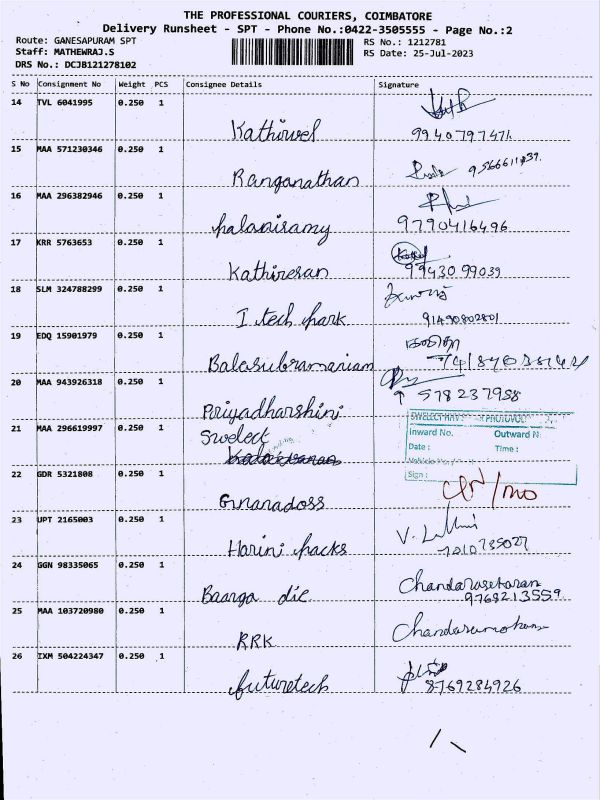 THE PROFESSIONAL COURIERS, COIMBATORE
Delivery Runsheet - SPT - Phone No.:0422-3505555 - Page No.:2
Route: GANESAPURAM SPT
RS No.: 1212781
Staff: MATHEWRAJ.S
RS Date: 25-Jul-2023
DRS No.: DCJB121278102
S No Consignment No Weight PCS Consignee Details Signature
14 TVL 6041995 0.250 1
Kathirvel 9940797471
15 MAA 571230346 0.250 1
Ranganathan
16 MAA 296382946 0.250 1
palanisamy 9790416496
17 KRR 5763653 0.250 1
Kathiresan 99430 99039
18 SLM 324788299 0.250 1
I tech park 91490802801
19 EDQ 15901979 0.250 1
Balasubramaniam
20 MAA 943926318 0.250 1
578237958
Priyadharshini
21 MAA 296619997 0.250 1
Swelect
Inward No. Outward N
Date : Time :
22 GDR 5321808 0.250 1
Sign :
Gnanadoss
23 UPT 2165003 0.250 1
Harini packs
24 GGN 98335065 0.250 1
Baarga die Chandarasekaran
9768213559
25 MAA 103720980 0.250 1
RRK Chandaramohan
26 IXM 504224347 0.250 1
futuretech 8769284926